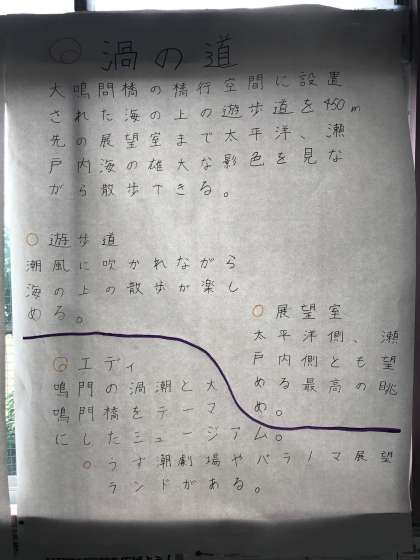 渦の道
大鳴門橋の橋行空間に設置
された海の上の遊歩道を450m
先の展望室まで太平洋、瀬
戸内海の雄大な影色を見な
がら散歩できる。
遊歩道
潮風に吹かれながら
海の上の散歩が楽し
める。
展望室
太平洋側、瀬
戸内側とも望
める最高の眺
め。
エディ
鳴門の渦潮と大
鳴門橋をテーマ
にしたミュージアム。
うず潮劇場やパラノマ展望
ランドがある。